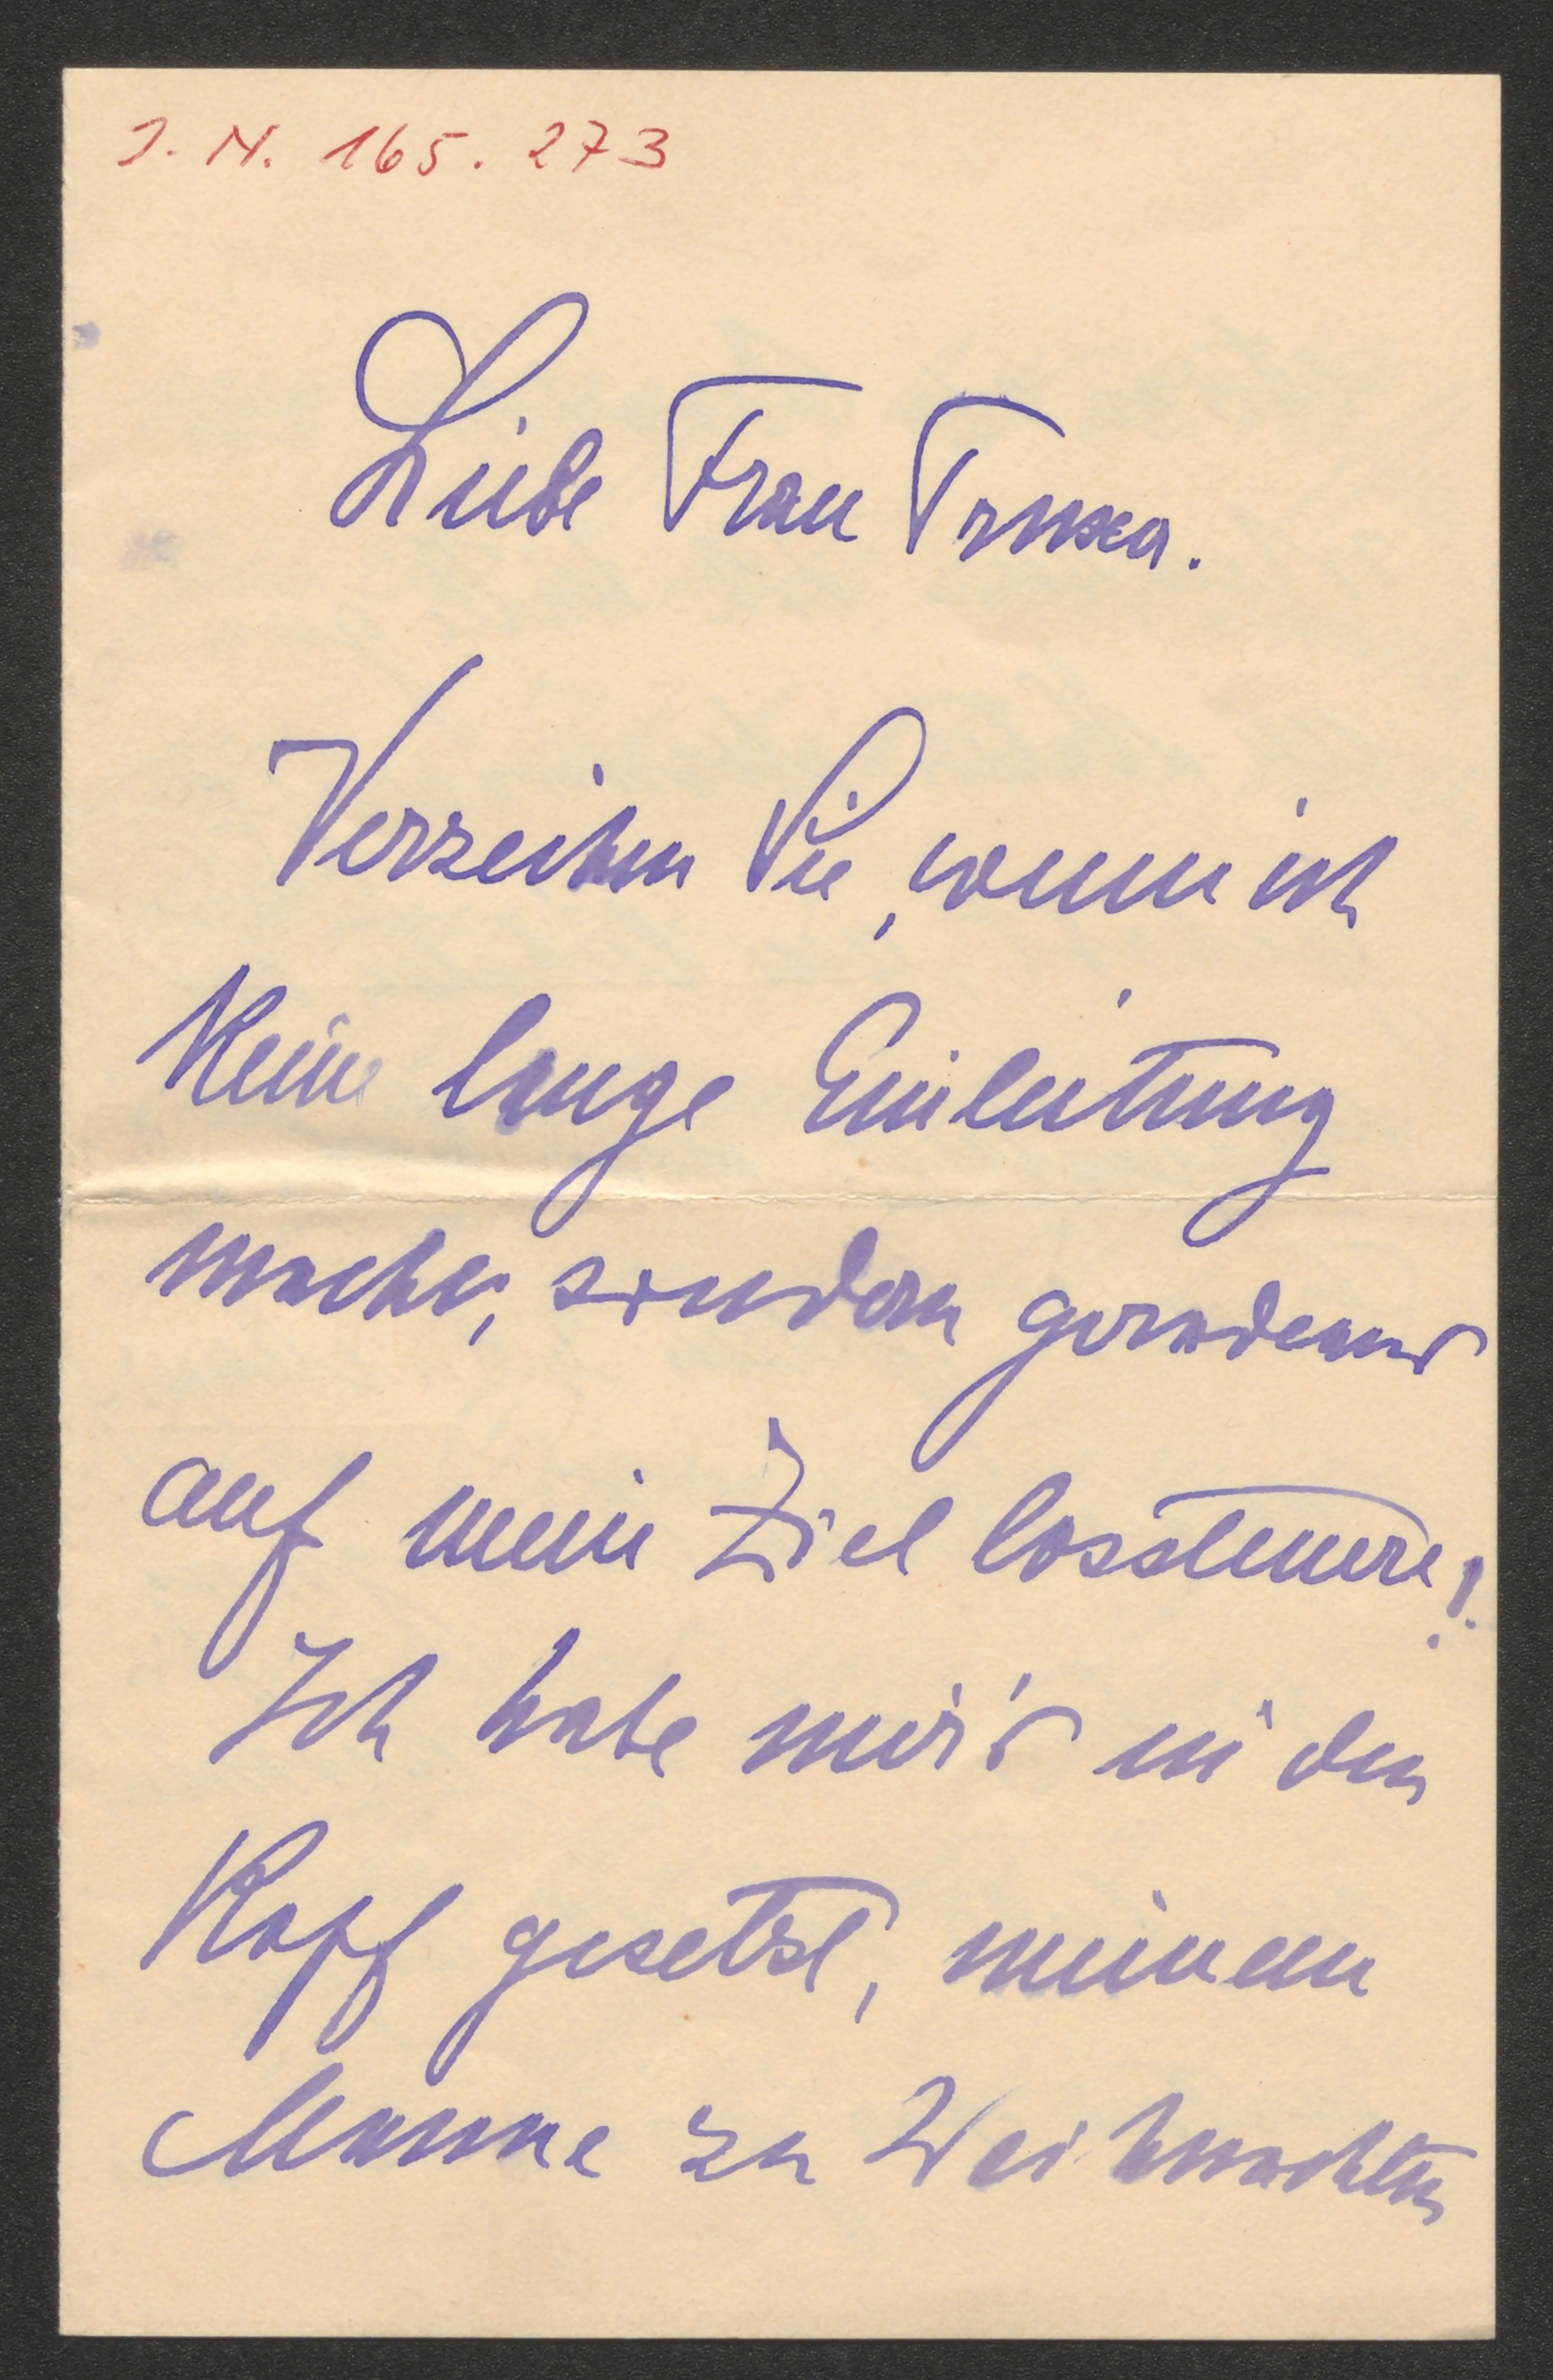 J. N. 165.273
Liebe Frau
Verzeihen Sie, wenn ich
keine lange Einleitung
mache, sondern geradeaus
auf mein Ziel lossteuere!
Ich habe mir's in den
Kopf gesetzt, meinem
Manne zu Weihnachten